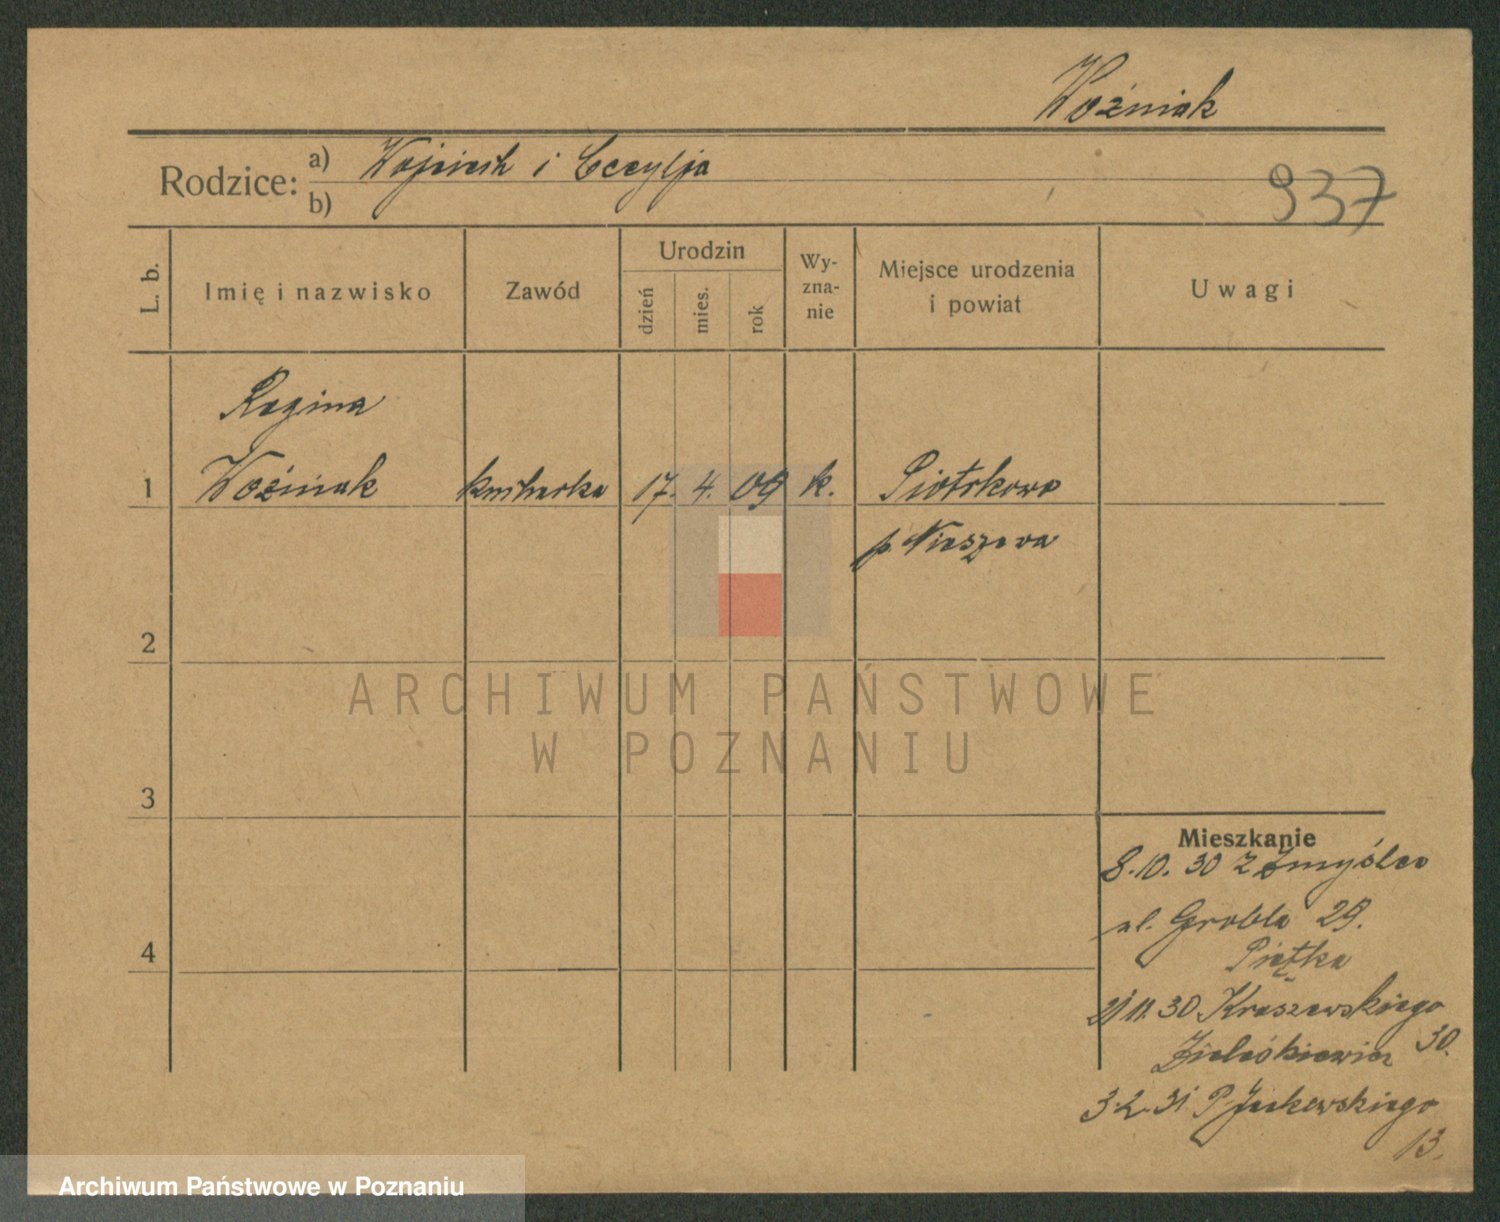 Woźniak
Rodzice:
a) Wojciech i Cecylja
b)
937
L. b.
Imię i nazwisko
Zawód
Urodzin
dzień
mies.
rok
Wy-
zna-
nie
Miejsce urodzenia
i powiat
Uwagi
Regina
1 Woźniak kucharka 17. 4. 09 k. Piotrkowo
p. Nieszawa
2
ARCHIWUM PAŃSTWOWE
W POZNANIU
3
Mieszkanie
8.10. 30 z Zmyślea
ul. Grobla 29.
4
Piętka
21 11. 30 Kraszewskiego
30.
3.2.31 P Jackowskiego
13.
Archiwum Państwowe w Poznaniu